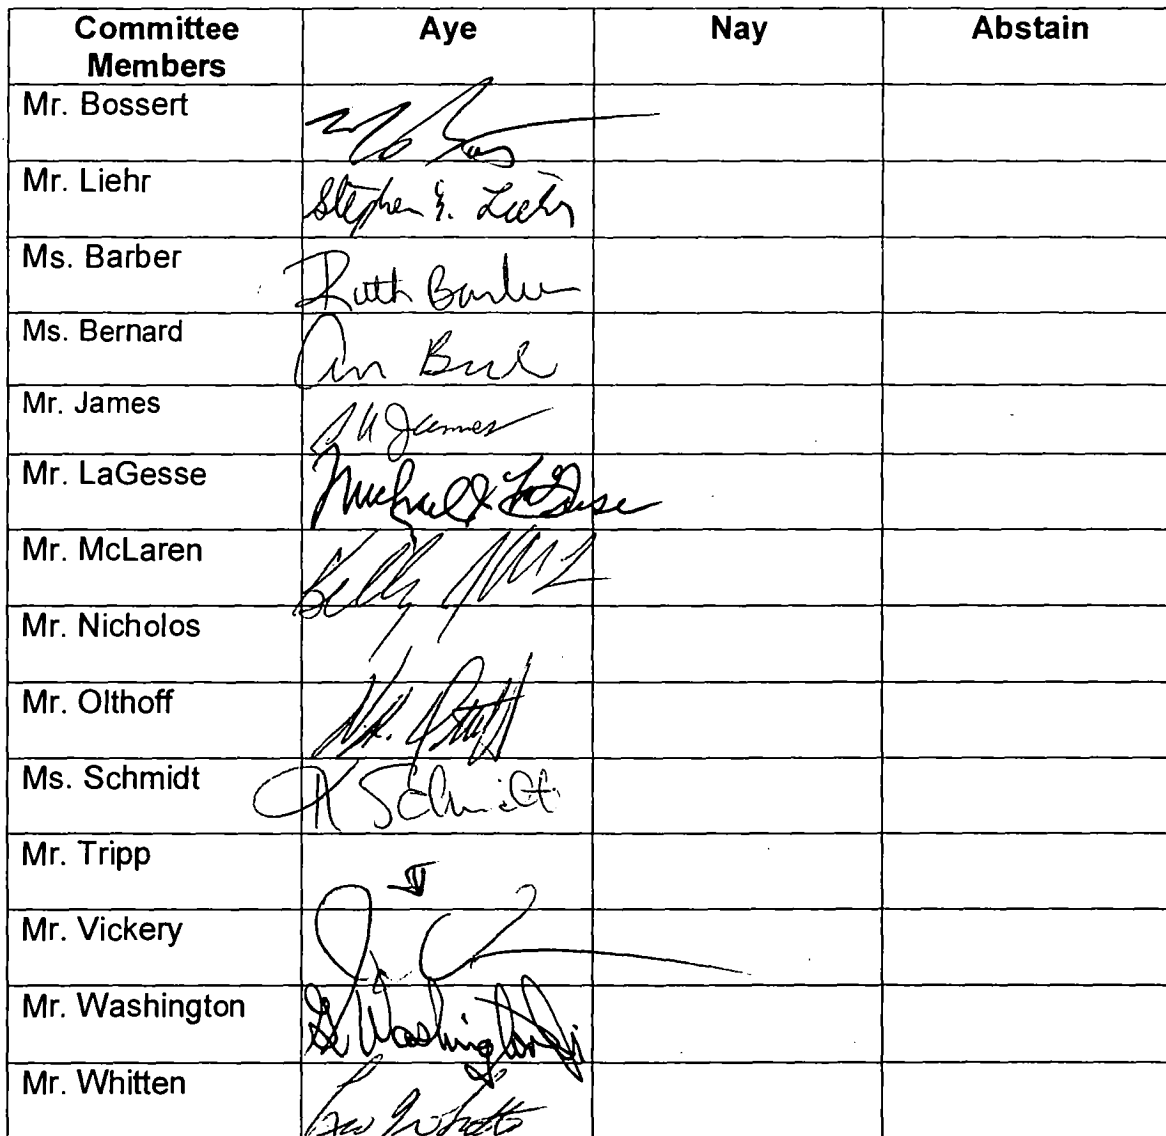 Committee Members Aye Nay Abstain
Mr. Bossert
Mr. Liehr Stephen E. Liehr
Ms. Barber Ruth Barber
Ms. Bernard Ann
Mr. James James
Mr. LaGesse Michael LaGesse
Mr. McLaren Kelly
Mr. Nicholos
Mr. Olthoff
Ms. Schmidt K Schmidt
Mr. Tripp
Mr. Vickery
Mr. Washington G Washington Jr
Mr. Whitten Whitten